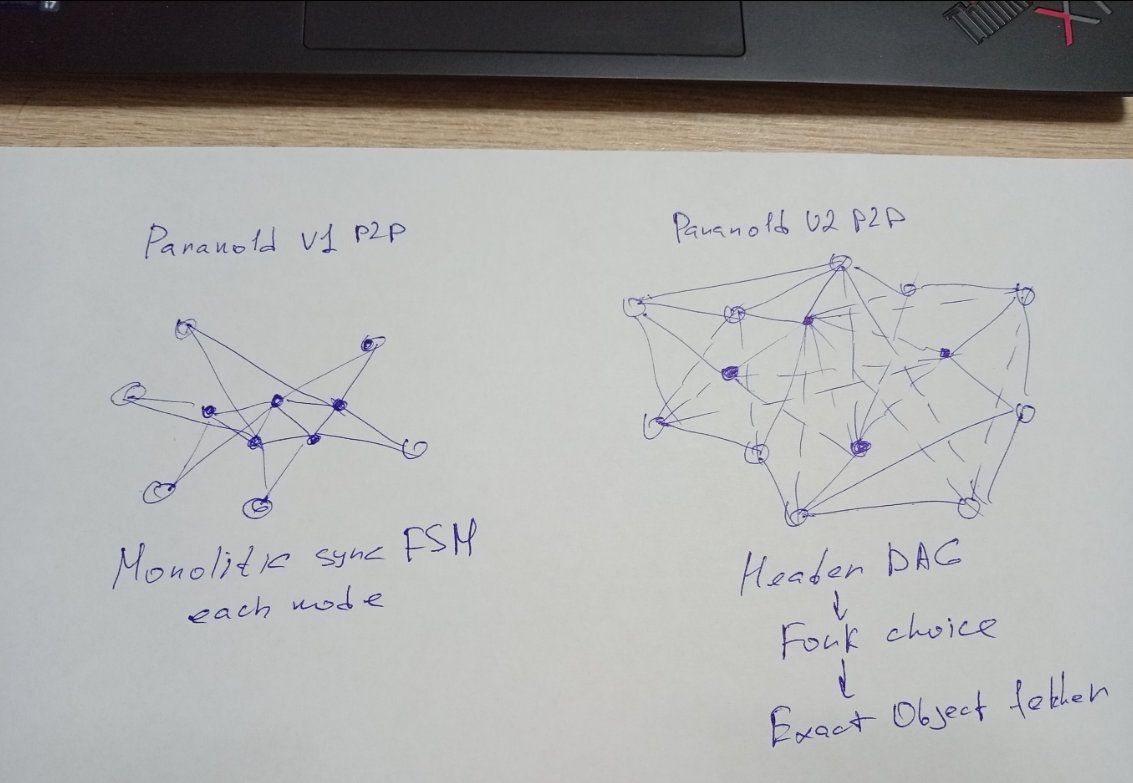 i7
Think
X1
Paranoid V1 P2P
Paranoid V2 P2P
Monolitic sync FSM
each node
Header DAG
↓
Fork choice
↓
Exact Object fetcher